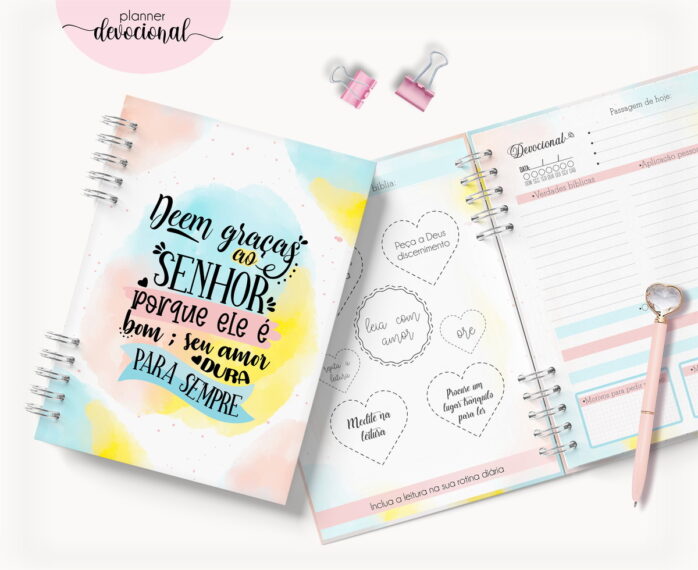 planner
devocional
Deem graças
ao
SENHOR
porque ele é
bom ; seu amor
DURA
PARA SEMPRE
bíblia:
Peça a Deus
discernimento
leia com
amor
ore
leitura
Medite na
leitura
Procure um
lugar tranquilo
para ler
Inclua a leitura na sua rotina diária
Devocional
DATA: / /
Passagem de hoje:
•Verdades bíblicas
•Aplicação pessoa
•Motivos para pedir